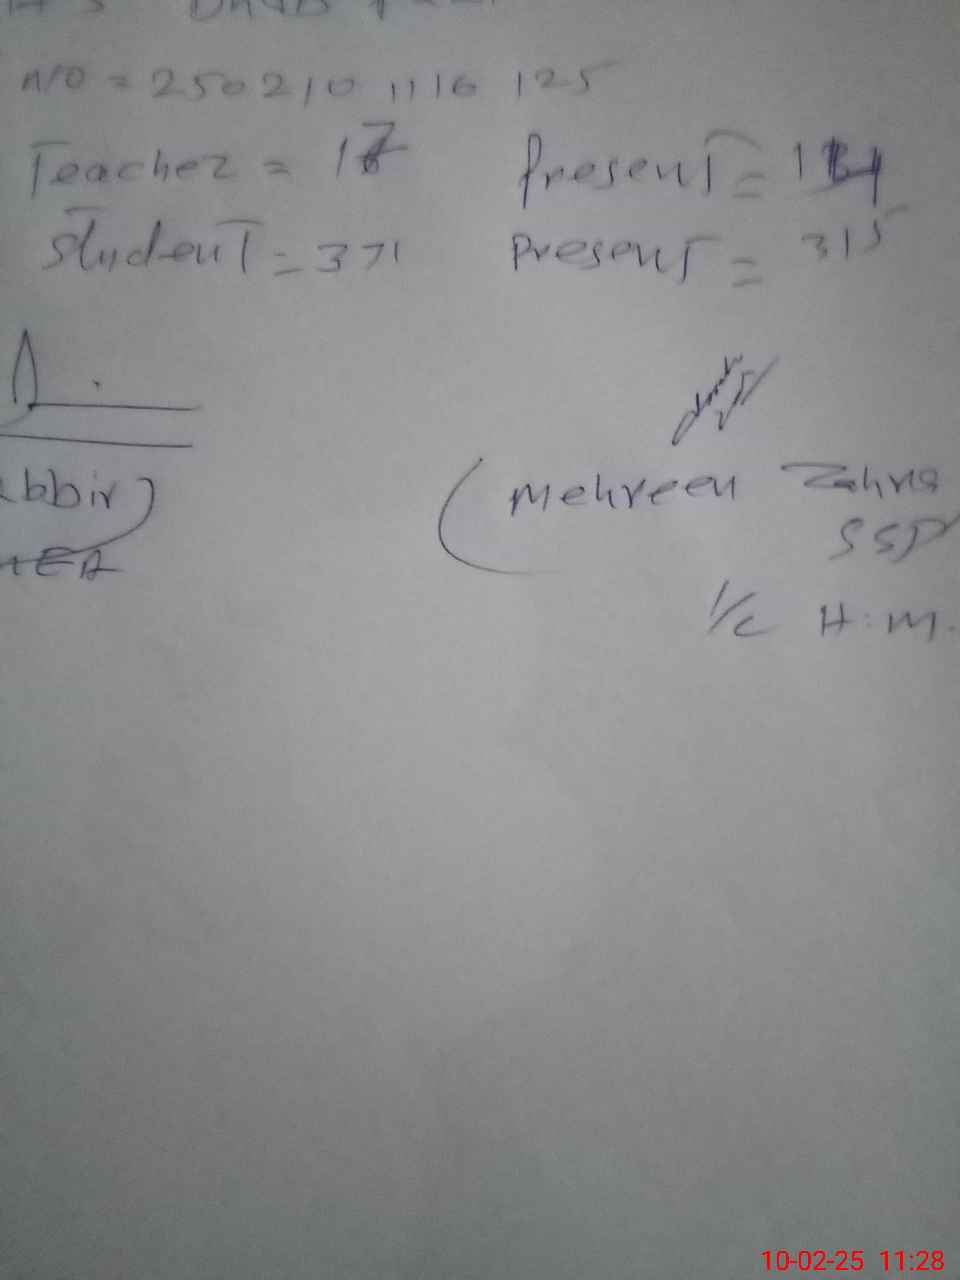 N/O = 250210 1116 125
Teacher = 17 Present = 14
Student = 371 Present = 315
bbir)
(Mehreen Zahra
SSP
I/C H.M.
10-02-25 11:28